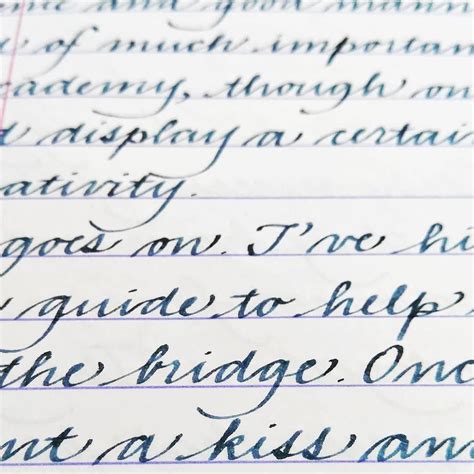 me and good mann
of much importan
cademy, though on
d display a certai
ativity.
goes on. I've hi
guide to help
the bridge. Onc
nt a kiss an